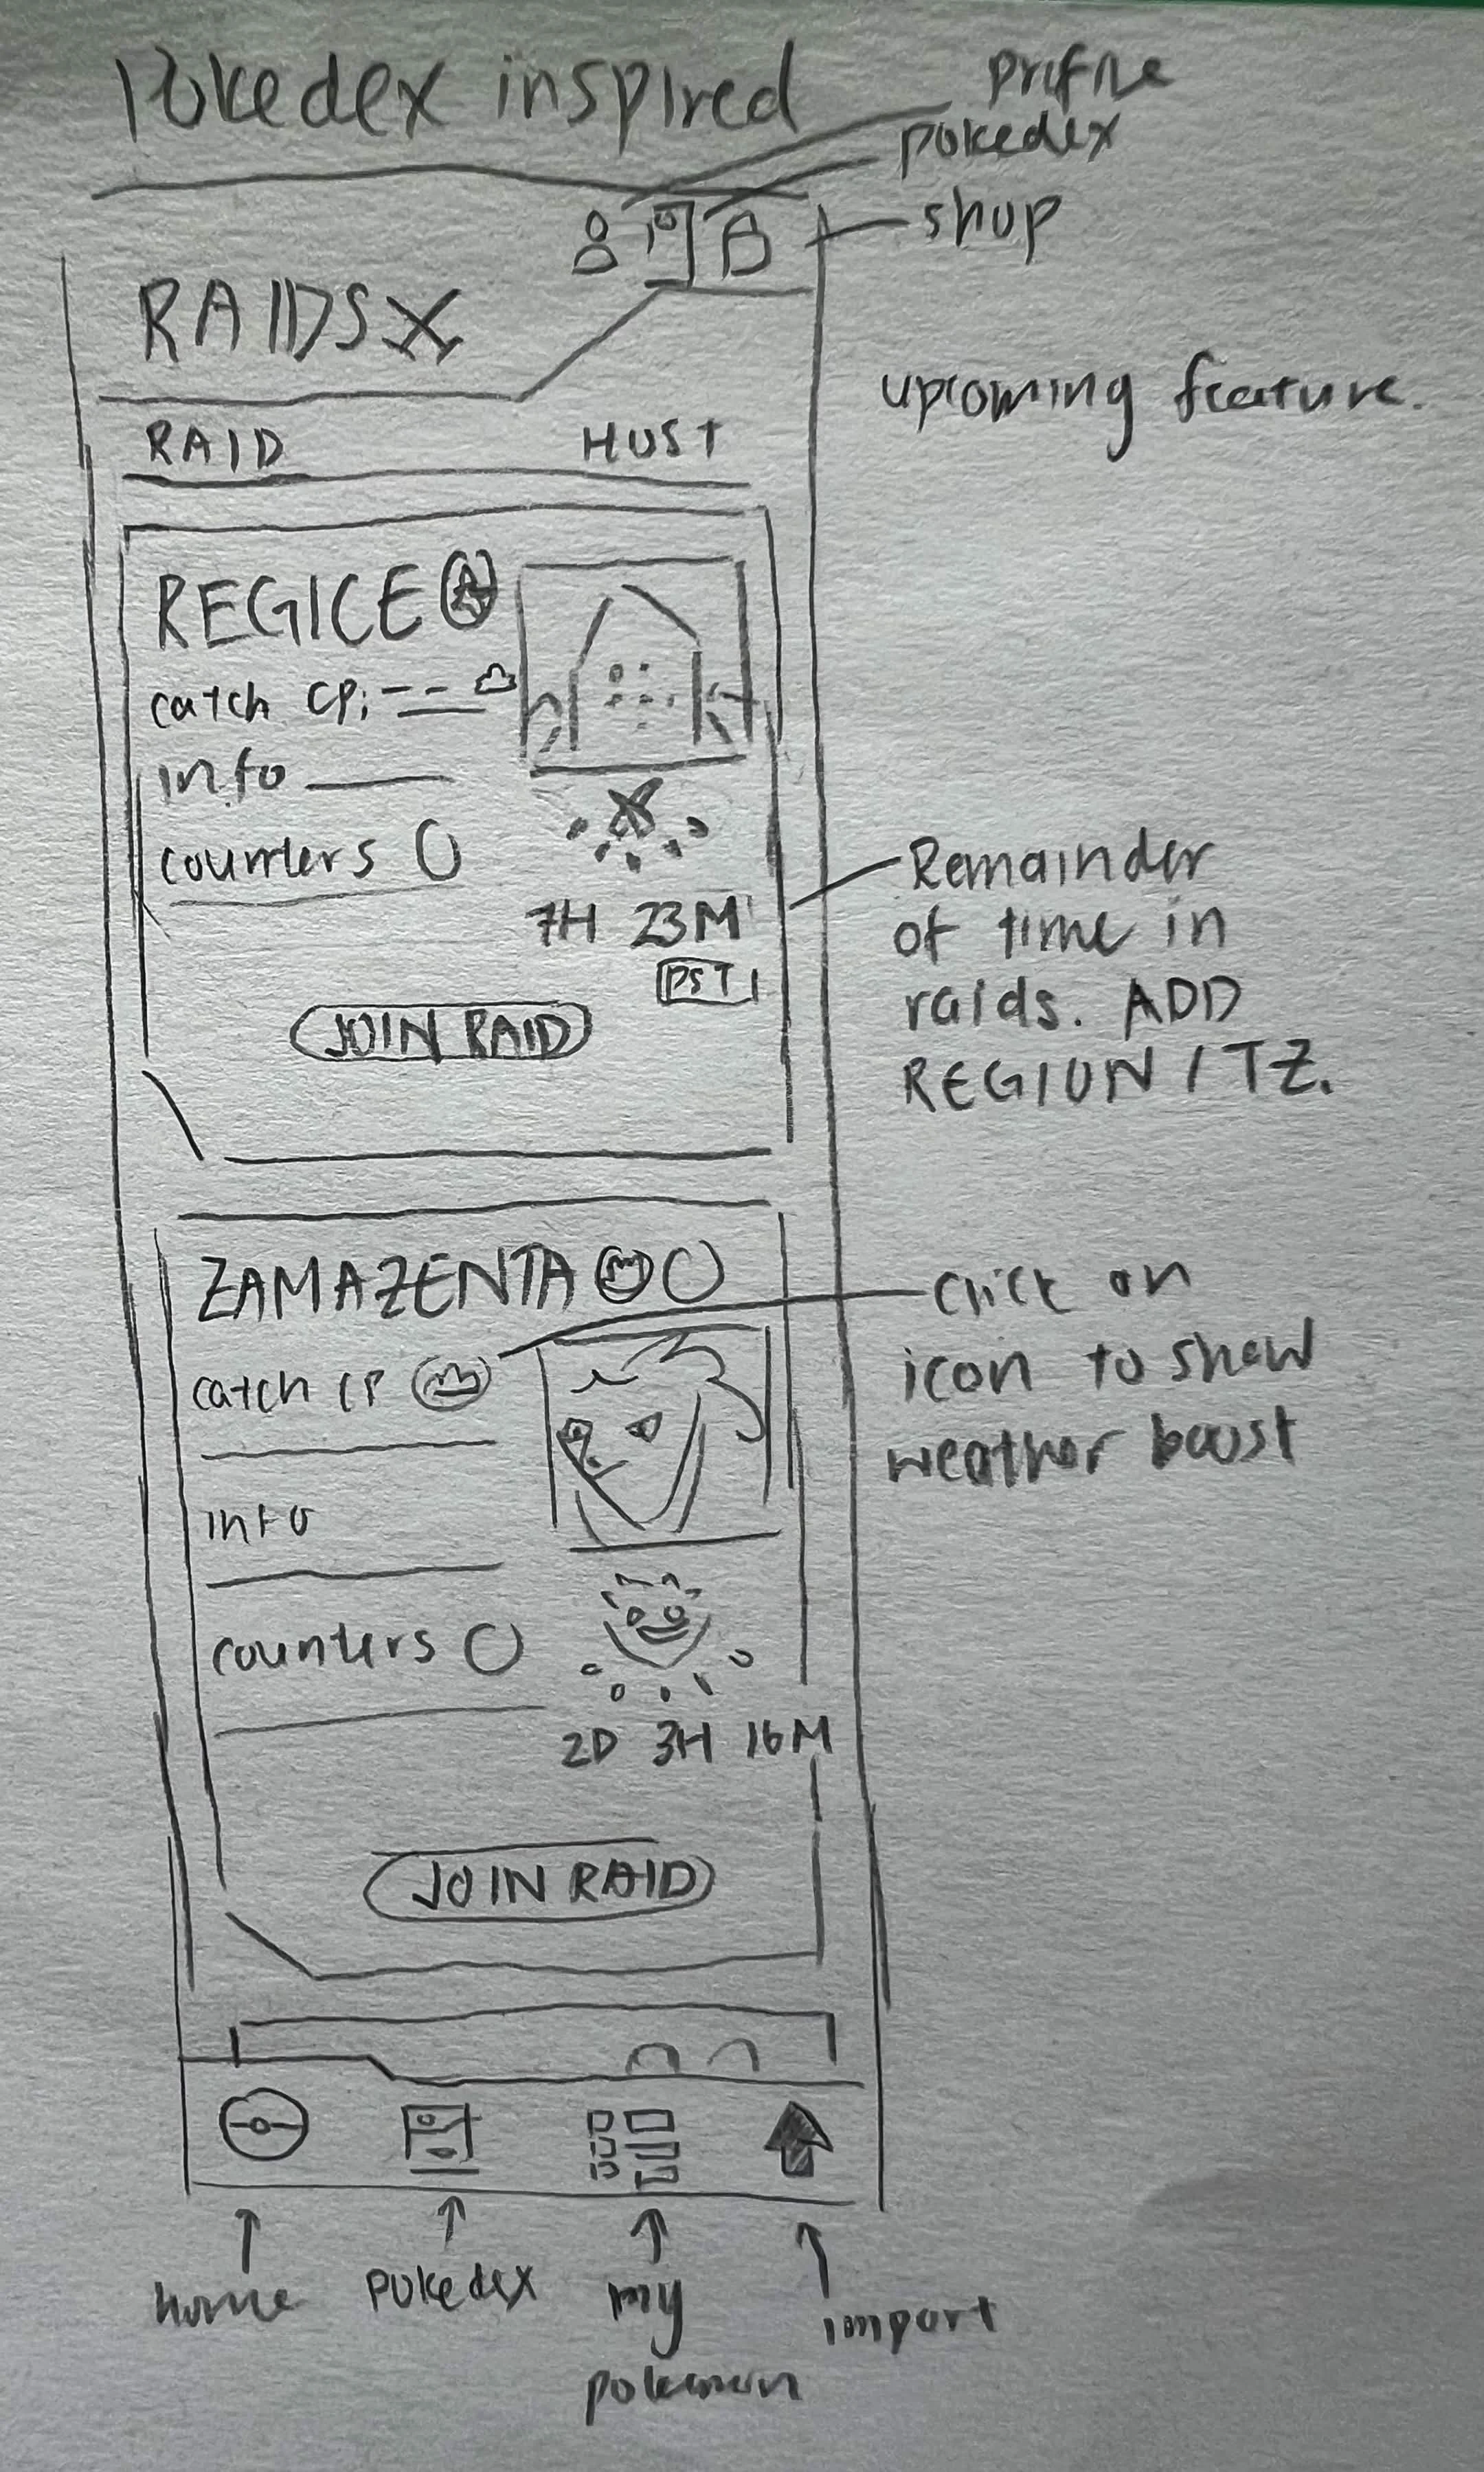 Pokedex inspired
profile
pokedex
shop
RAIDS
upcoming feature.
RAID HOST
REGICE
catch CP:
info
counters
7H 23M
PST
JOIN RAID
Remainder
of time in
raids. ADD
REGION / TZ.
ZAMAZENTA
catch CP
info
counters
2D 3H 16M
JOIN RAID
click on
icon to show
weather boost
home
pokedex
my
pokemon
import